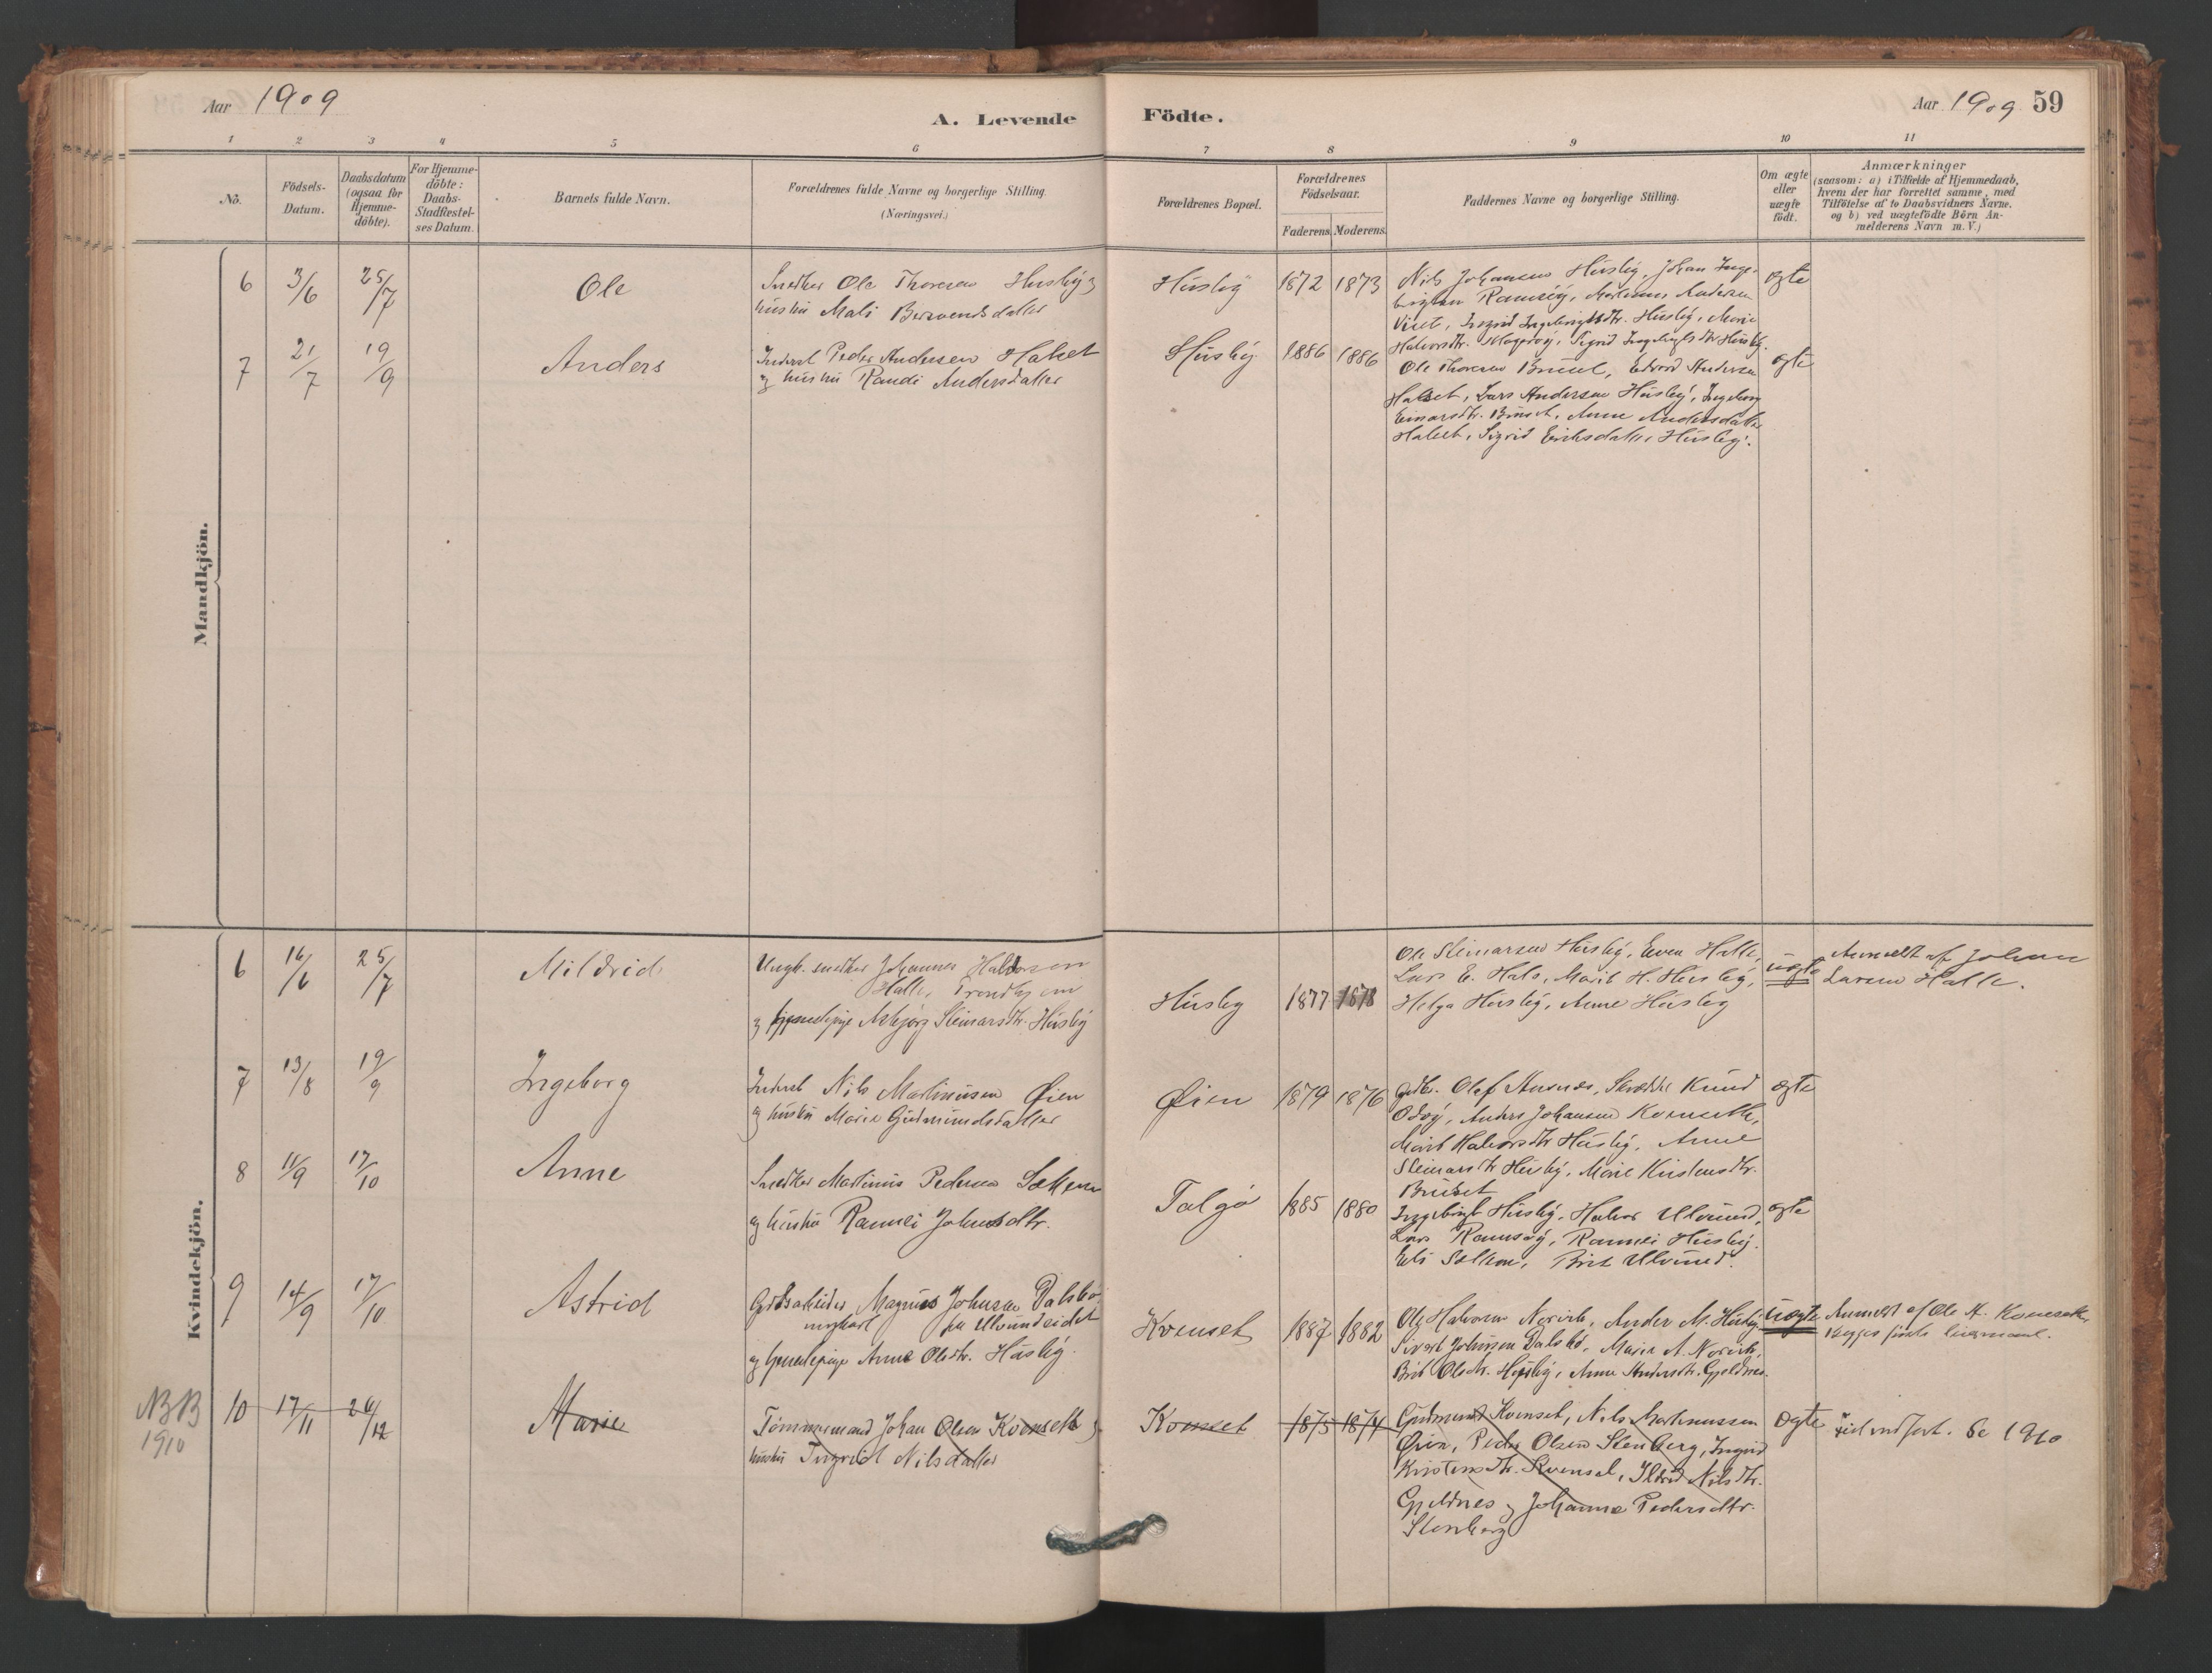 Aar 1909
A. Levende Födte.
Aar 1909 59
1 2 3 4 5 6 7 8 9 10 11
No.
Födsels-
Datum.
Daabsdatum
(ogsaa for
Hjemme-
döbte).
For Hjemme-
döbte:
Daabs-
Stadfæstel-
ses Datum.
Barnets fulde Navn.
Forældrenes fulde Navne og borgerlige Stilling.
(Næringsvei.)
Forældrenes Bopæl.
Forældrenes
Födselsaar.
Faderens. Moderens.
Faddernes Navne og borgerlige Stilling.
Om ægte
eller
uægte
födt.
Anmærkninger
(saasom: a) i Tilfælde af Hjemmedaab,
hvem der har forrettet samme, med
Tilföielse af to Daabsvidners Navne,
og b) ved uægtefödte Börn An-
melderens Navn m.V.)
Mandkjön.
6 3/6 25/7 Ole
Snedker Ole Thoresen Husby og
hustru Mali
Husby 1872 1873
Nils Johansen Husby, Johan Inge-
brigtsen Ramsöy, Andersen
Ingrid Ingebrigtsdtr. Husby, Marie
Halvorsdtr. Sigrid Ingebrigtsdtr Husby.
ægte
7 21/7 19/9 Anders
Inderst Peder Andersen Halset
og hustru Randi Andersdatter
Husby 1886 1886
Ole Thoresen Edvard Andersen
Halset, Lars Andersen Husby, Ingeborg
Einarsdtr. Anne Andersdatter
Halset, Sigrid Eriksdatter Husby.
ægte
Kvindekjön.
6 16/6 25/7 Mildrid
Ungk. snedker Johannes Haldorsen
Halle, Trondhjem
og Steinarsdtr. Husby
Husby 1877 1878
Ole Steinarsen Husby, Even Halle,
Lars E. Hals, Marit H. Husby,
Helga Husby, Anne Husby
uægte
Anmeldt af Johan
Larsen Halle.
7 13/8 19/9 Ingeborg
Inderst Nils Martinusen Øien
og hustru Marie Gudmundsdatter
Øien 1879 1876
Gdbr. Olaf Skrædder Knud
Anders Johansen Kvensethe,
Marit Halvorsdtr Husby, Anne
Steinarsdtr Husby, Marie Kristensdtr.
ægte
8 11/9 17/10 Anne
Snedker Martinus Pedersen
og hustru Rannei Johnsdtr.
Talgö 1885 1880
Ingebrigt Husby, Halvor Ulvund,
Lars Ramsöy, Rannei Husby.
Brit Ulvund.
ægte
9 14/9 17/10 Astrid
Magnus Johnsen Dalsbö
ungkarl fra Ulvundeidet
og Anne Olsdtr. Husby.
Kvenset 1887 1882
Ole Halvorsen Norvik, Anders M. Husby
Sivert Johnsen Dalsbö, Maria A. Norvik,
Brit Olsdtr. Husby, Anne Andersdtr. Gjeldnes.
uægte
Anmeldt af Ole A. Kvensethe,
Begges första leiermaal.
NB
1910
10 17/11 26/12 Marie
Tömmermand Johan Olsen Kvenseth og
hustru Ingrid Nilsdatter
Kvenset 1875 1874
Gudmund Kvenset, Nils Martinussen
Øien, Peder Olsen Stenberg, Ingrid
Kristensdtr. Kvenset, Ildrid Nilsdtr.
Gjeldnes og Johanne Pedersdtr.
Stenberg
ægte
Se 1910